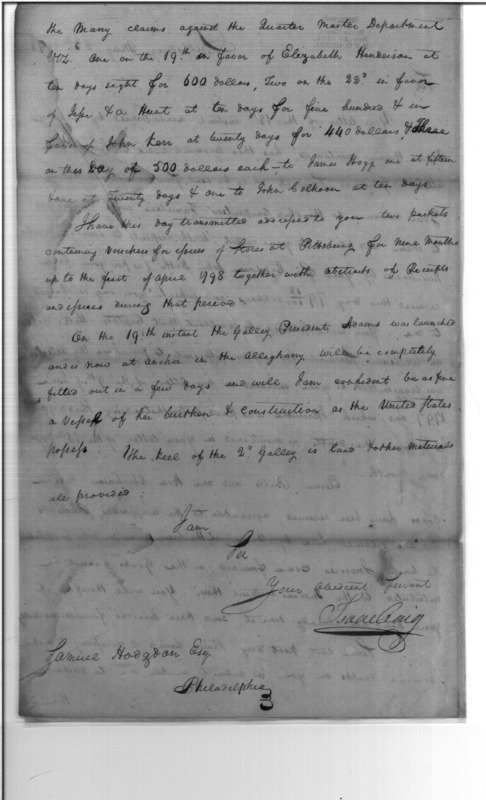 the Many claims against the Quarter Master Department
Viz. One on the 19th in favor of Elizabeth Henderson at
ten days sight for 600 dollars, Two on the 22d in favor
of Jesse & A Hunt at ten days for five hundred & in
favor of John Kerr at twenty days for 440 dollars, & Three
on this Day of 500 dollars each to James Hogg one at fifteen
one at Twenty days & one to John at ten days
I have this day transmitted addressed to you two packets
containing vouchers for issues of Stores at Pittsburg for nine Months
up to the first of April 1798 together with abstracts of Receipts
and issues during that period.
On the 19th instant the Galley President Adams was launched
and is now at anchor in the Alleghany will be completely
fitted out in a few days and will I am confident be as fine
a Vessel of her burthen & construction as the United States
possess. The Keel of the 2d Galley is laid & other Materials
all provided
I am
Sir
Your obedient Servant
Isaac Craig
Samuel Hodgdon Esq
Philadelphia